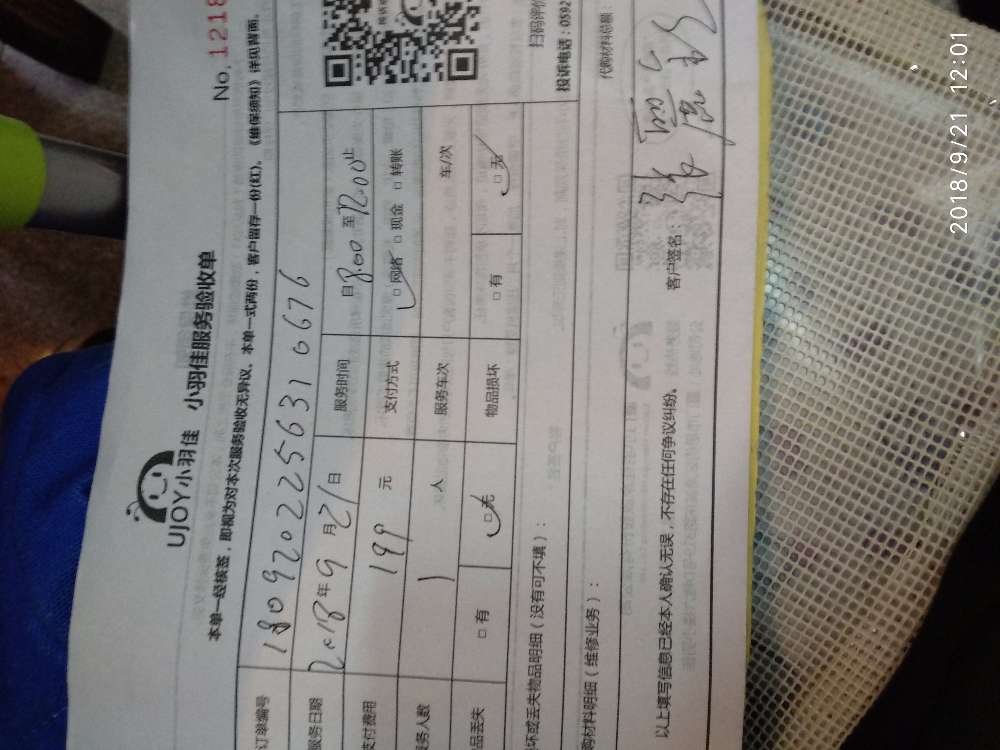 No. 1218
UJOY小羽佳 小羽佳服务验收单
本单一经核签，即视为对本次服务验收无异议。本单一式两份，客户留存一份(红)。《维保须知》详见背面。
订单编号 180920225631 0676
服务日期 2018年9月21日 服务时间 自8:00至12:00止
支付费用 199 元 支付方式 □网络 □现金 □转账
务人数 1 人 服务车次 车/次
品丢失 □有 □无 物品损坏 □有 □无
坏或丢失物品明细（没有可不填）：
扫码评价
投诉电话：0592
购材料明细（维修业务）：
代购材料总额：
以上填写信息已经本人确认无误，不存在任何争议纠纷。 客户签名：
2018/9/21 12:01